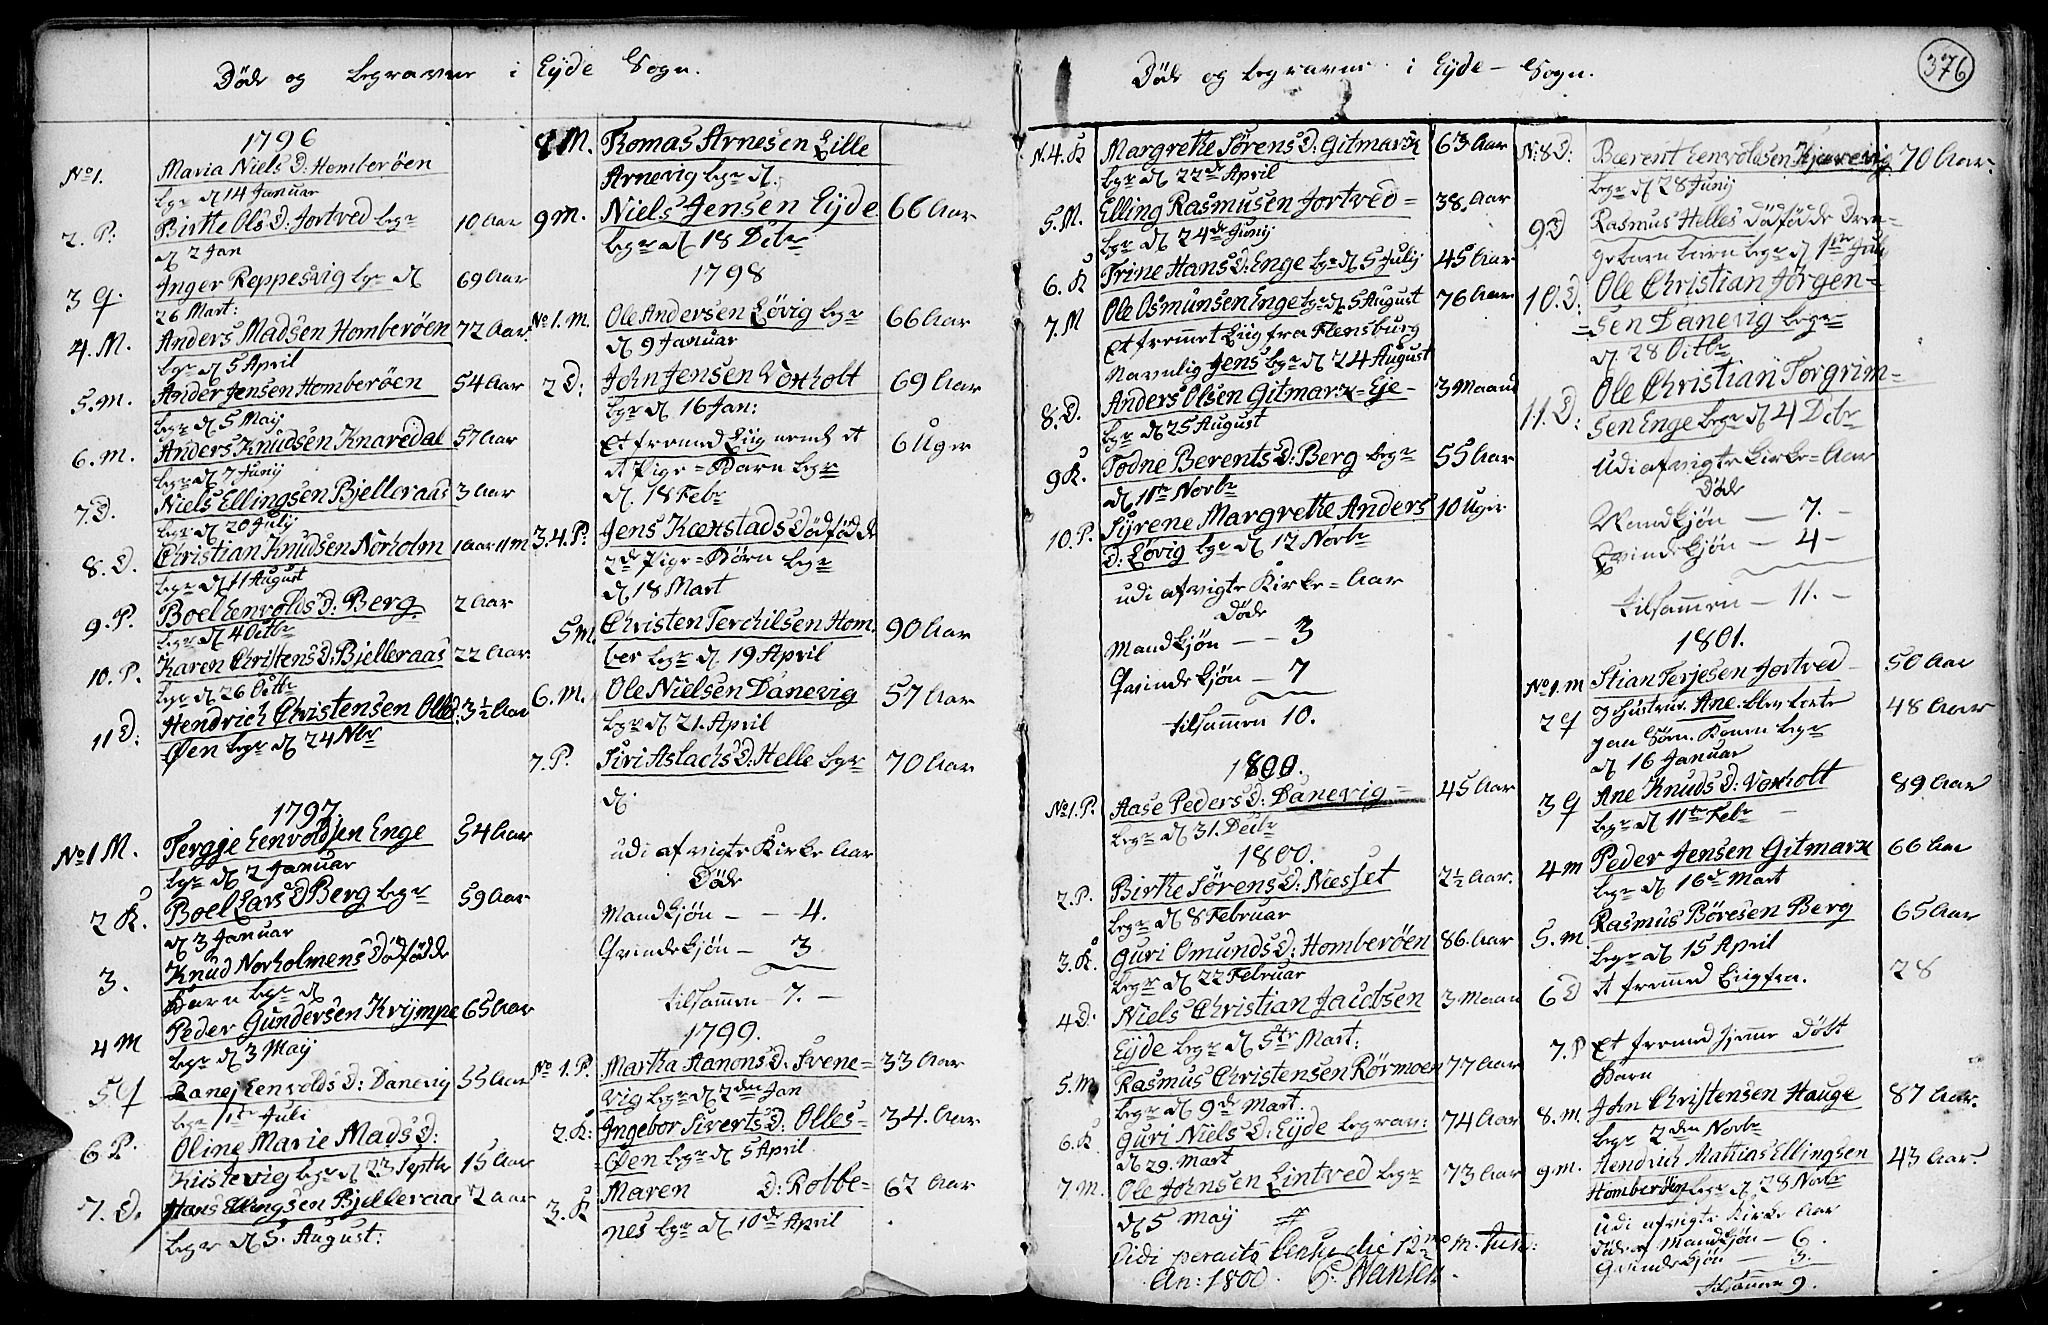 Døde og begravne i Eyde Sogn.
1796
No 1. Maria Niels D: Homberøen
begr d 14 Januar
2. P: Birthe Ols D: Jortved begr 10 Aar
d 2 Jan
3 q. Inger Reppesvig begr d 69 Aar
26 Mart:
4. M. Anders Madsen Homberøen 72 Aar.
begr d 5 April
5. m. Ander Jensen Homberøen 54 Aar
begr d 5 Maij
6. m. Anders Knudsen Knaredal 57 Aar
begr d 7 Junij
7. D. Niels Ellingsen Bjelleraas 3 Aar
begr d 20 Julij
8. D. Christian Knudsen Norholm 1 Aar 11 m
begr d 1 August
9. P. Boel Eenvolds D: Berg 2 Aar
begr d 4 Octbr
10. P. Karen Christens D: Bjelleraas 22 Aar
begr d 26 Octbr
11 D: Hendrich Christensen Olles 3½ Aar
Øen begr d 24 Nbr
1797
No 1 M. Tergje Eenvoldsen Enge 54 Aar
begr d 2 Januar
2 K. Boel Lars D Berg begr 59 Aar
d 3 Januar
3. Knud Norholmens Dødfødde
Barn begr d
4 M Peder Gundersen Krÿmpe 65 Aar
begr d 3 Maij
5 q Ranej Eenvolds D: Danevig 55 Aar
begr 1ste Juli
6 P. Oline Marie Mads D:
Kistevig begr d 23 Septbr 15 Aar
7. D. Hans Ellingsen Bjelleraas 2 aar
begr d 5. August:
8 M. Thomas Arnesen Lille
Arnevig begr d.
9 m. Niels Jensen Eyde 66 Aar
begr d 18 Debr
1798
No 1. m. Ole Andersen Løvig begr 66 Aar
d 9 Januar
2 D: John Jensen Voxholt 69 Aar
begr d. 16 Jan:
Et fremed Liig nemlig et 6 Uger
Pige=Barn begr
d. 18 Febr
3. 4. P: Jens Kærstads Dødfødde
2de Pige=Børn begr
d 18 Mart
5 m Christen Terchilsen Hom 90 Aar
ber begr d. 19 April
6. m. Ole Nielsen Danevig 57 Aar
begr d 21. April
7. P. Siri Aslachs D: Helle begr 70 Aar
d.
udi afvigte Kirke Aar
Døde
Mandkjøn - - 4.
Qvindekjøn - 3.
tilsammen - 7. -
1799.
No 1. P. Martha Aanons D: Svene= 33 Aar
vig begr d 2den Jan
2. K: Ingebor Siverts D: Olles= 34. Aar
=Øen begr d 5 April.
3. K Maren D: Rotbe= 62 Aar
nes begr d 10de April
Døde og begravne i Eyde - Sogn.
376
N. 4. K Margrethe Sørens D: Gitmark 63 Aar
begr d 22de April
5. M. Elling Rasmusen Jortved = 38. Aar
begr d 24de Junij
6. K Trine Hans D: Enge begr d 5 Julij 45 Aar
7. M Ole Osmunsen Enge begr d 5 August 76 Aar
Et fremmet Liig fra Flensburg
Navnlig Jens begr d 24 August
8. D. Anders Olsen Gitmark=Eje- 3 Maand
begr d 25 August
9 K. Todne Berents D: Berg begr 55 Aar
d 11te Novbr
10. P. Syrene Margrethe Anders 10 Uger
D: Løvig begr d 12 Novbr
udi afvigte Kirke=Aar
Døde
Mandkjøn - - 3
Qvindekjøn - 7
tilsammen 10.
1800.
No 1. P. Aase Peders D: Danevig= 45 Aar
begr d 31. Decbr
1800.
2. P. Birthe Sørens D: Næsset 2½ Aar.
begr d 8 Februar
3. K. Guri Omunds D: Homberøen 86. Aar
begr d 22 Februar
4 D: Niels Christian Jacobsen 3 Maan
Eyde begr d 5te Mart:
5. m Rasmus Christensen Rørmoen 77 Aar
begr d 9de Mart.
6. K Guri Niels D: Eyde begrav: 74 Aar
d 29. Mart
7. M. Ole Johnsen Lintved begr 73 Aar
d 5 Maij
Vidi peracto censu die 12mo
An: 1800. P. Hansen.
No: 8 D: Bærent Eenvoldsen Kjørevig 70 Aar.
begr d 28 Junij
9 D Rasmus Helles Dødfødde Dren=
gebarn begr d 1ste Juli
10. D: Ole Christian Jørgen=
=sen Danevig begr
d. 28 Octbr
11. D: Ole Christian Torgrim=
sen Enge begr d 4 Debr
udi afvigte Kirke=Aar
Døde
Mandkjøn - 7. -
Qvindekjøn - 4 -
tilsammen - 11. -
1801.
No 1. m Stian Terjesen Jortved 50 Aar
2 q Hustrue Ane 48 Aar
begr
d 16 Januar
3 q Ane Knuds D: Voxholt 89 Aar
begr d 11te Febr
4 m Peder Jensen Gitmark 66 Aar
begr d 16de Mart
5. m Rasmus Børesen Berg 65 Aar
begr d 15 April
6 D et fremmed Liig fra. 28
7. P Et fremed hjemme Døbt
Barn
8. m. John Christensen Hauge 87 Aar.
begr 2den Novbr
9 m. Hendrich Mathias Ellingsen 43 Aar.
Homberøen begr d 28 Novbr
udi afvigte Kirke Aar
Døde af Mandkjøn - 6.
Qvindekjøn - 3.
tilsammen 9.